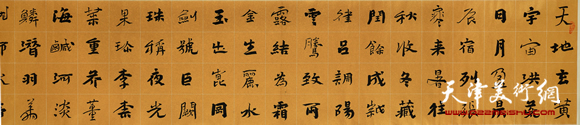 天地玄黃
宇宙洪荒
日月盈昃
辰宿列張
寒來暑往
秋收冬藏
閏餘成歲
律呂調陽
雲騰致雨
露結為霜
金生麗水
玉出崑岡
劍號巨闕
珠稱夜光
果珍李柰
菜重芥薑
海鹹河淡
鱗潛羽翔
天津美術網